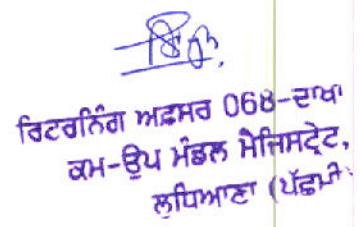 ਰਿਟਰਨਿੰਗ ਅਫ਼ਸਰ 068-ਦਾਖਾ
ਕਮ-ਉਪ ਮੰਡਲ ਮੈਜਿਸਟ੍ਰੇਟ,
ਲੁਧਿਆਣਾ (ਪੱਛਮੀ)